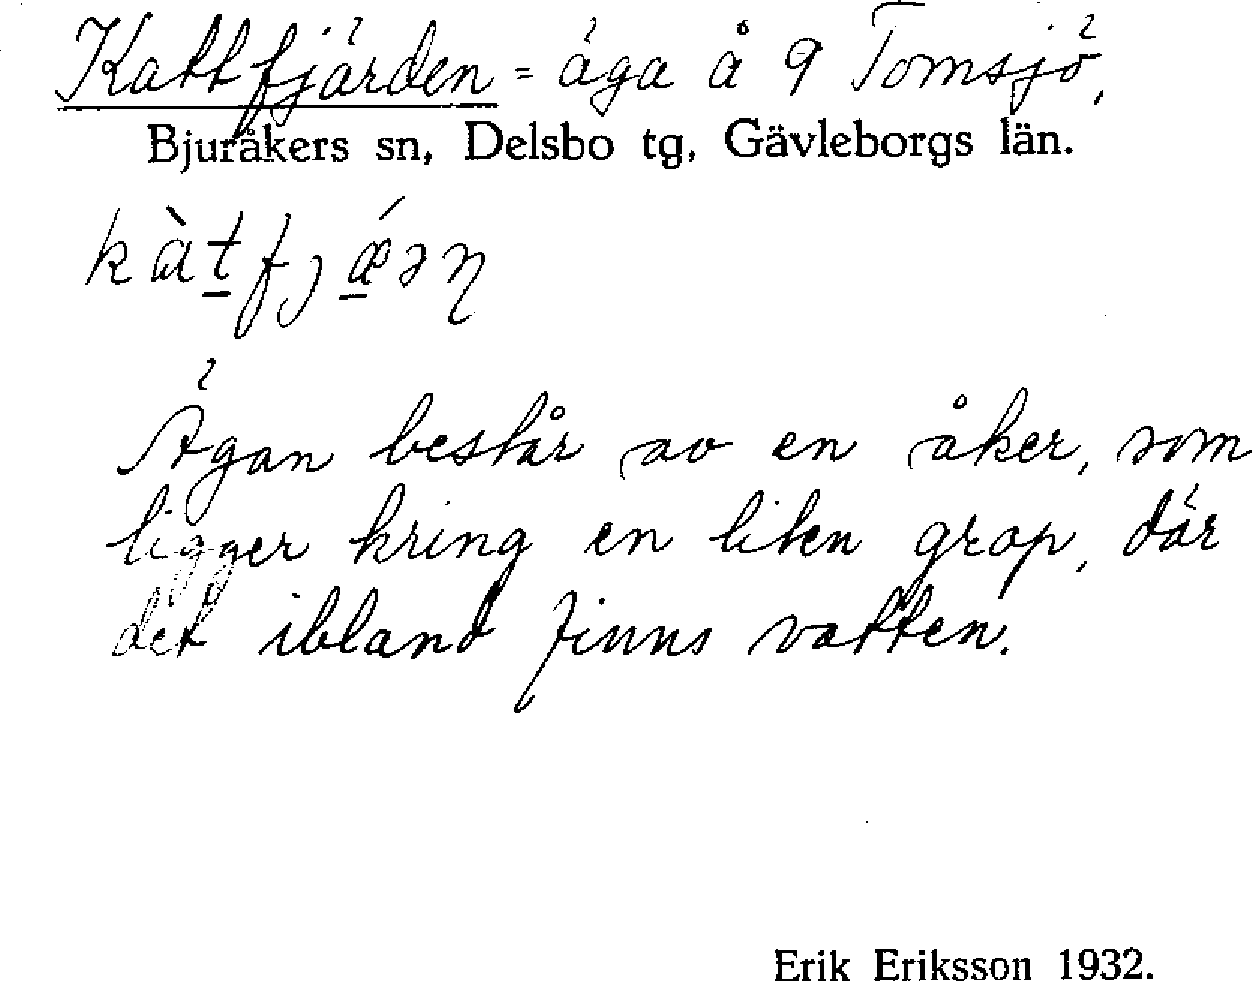 Kattfjärden = äga å 9 Tomsjö,
Bjuråkers sn, Delsbo tg, Gävleborgs län.
kàt̲fjǽ̲ən̡
Ägan består av en åker, som
ligger kring en liten grop, där
det ibland finns vatten.
Erik Eriksson 1932.